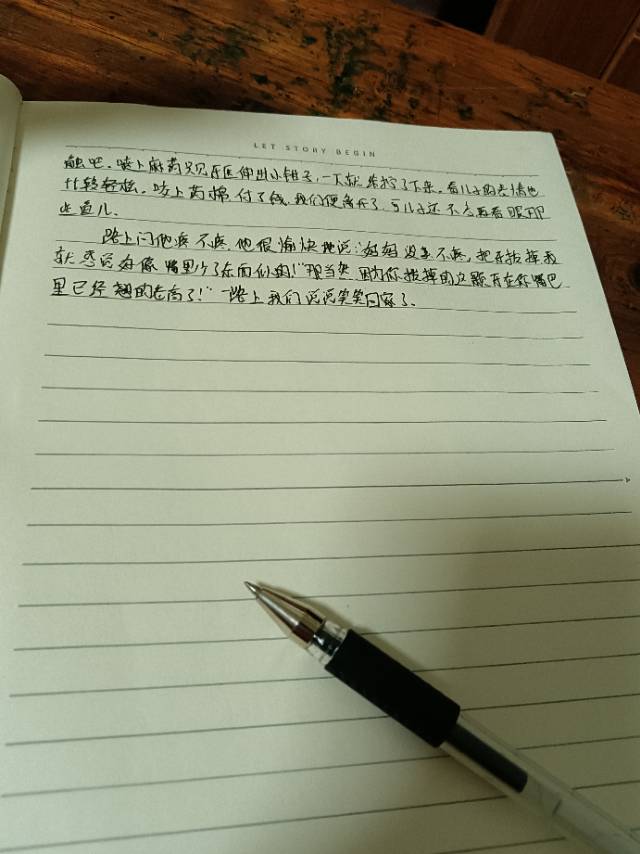 LET STORY BEGIN
鱼吧。咬上麻药只见牙医伸出小钳子,一下就给拧了下来。看儿子的表情也
什轻轻松。咬上药棉付了钱,我们便离开了,可儿子还不忘再看眼那
些鱼儿。
路上问他疼不疼他很愉快地说:妈妈没事不疼,把牙拔掉我
就感觉好像嘴里少了东西似的!"那当然因为你拔掉的这颗牙在你嘴巴
里已经翘的老高了!"一路上我们说说笑笑回家了。